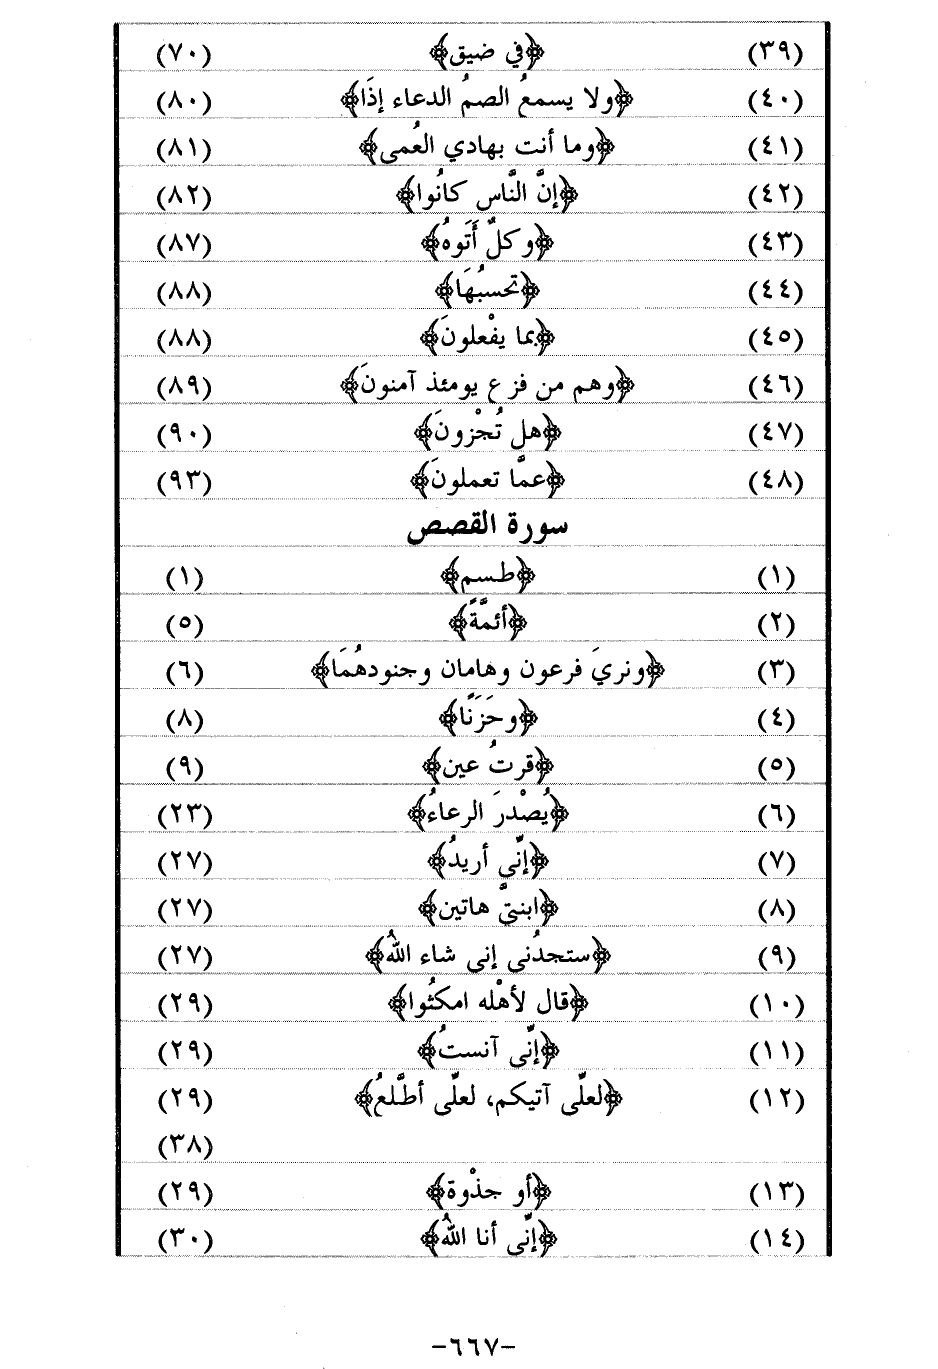 (٣٩) ﴿في ضيق﴾ (٧٠)
(٤٠) ﴿ولا يسمعُ الصمُ الدعاء إذَا﴾ (٨٠)
(٤١) ﴿وما أنت بهادي العُمى﴾ (٨١)
(٤٢) ﴿إنَّ النَّاس كانُوا﴾ (٨٢)
(٤٣) ﴿وكلٌ أَتَوهُ﴾ (٨٧)
(٤٤) ﴿تحسبُهَا﴾ (٨٨)
(٤٥) ﴿بما يفْعلونَ﴾ (٨٨)
(٤٦) ﴿وهم من فزع يومئذ آمنونَ﴾ (٨٩)
(٤٧) ﴿هل تُجْزونَ﴾ (٩٠)
(٤٨) ﴿عمَّا تعملونَ﴾ (٩٣)
سورة القصص
(١) ﴿طسم﴾ (١)
(٢) ﴿أئمَّةً﴾ (٥)
(٣) ﴿ونريَ فرعون وهامان وجنودهُمَا﴾ (٦)
(٤) ﴿وحَزَنًا﴾ (٨)
(٥) ﴿قرتُ عين﴾ (٩)
(٦) ﴿يُصْدرَ الرعاءُ﴾ (٢٣)
(٧) ﴿إنِّى أريدُ﴾ (٢٧)
(٨) ﴿ابنتىَّ هاتين﴾ (٢٧)
(٩) ﴿ستجدُنى إنى شاء اللهُ﴾ (٢٧)
(١٠) ﴿قال لأهْله امكثُوا﴾ (٢٩)
(١١) ﴿إنِّى آنستُ﴾ (٢٩)
(١٢) ﴿لعلِّى آتيكم، لعلِّى أطَّلعُ﴾ (٢٩)
(٣٨)
(١٣) ﴿أو جذْوة﴾ (٢٩)
(١٤) ﴿إنِّى أنا اللهُ﴾ (٣٠)
-٦٦٧-